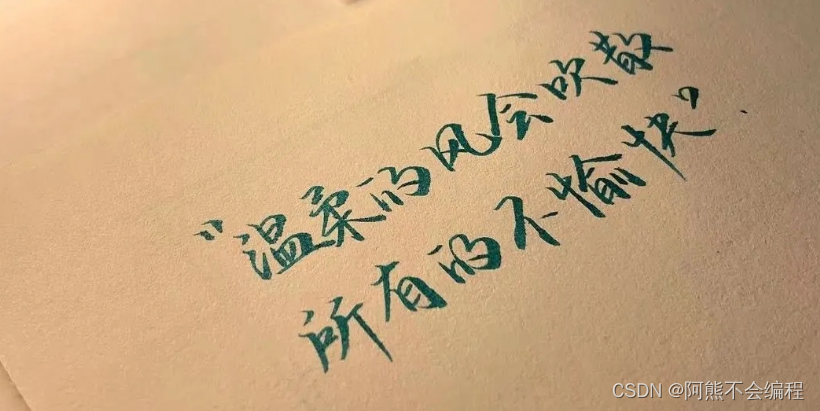 “温柔的风会吹散
所有的不愉快”
CSDN @阿熊不会编程